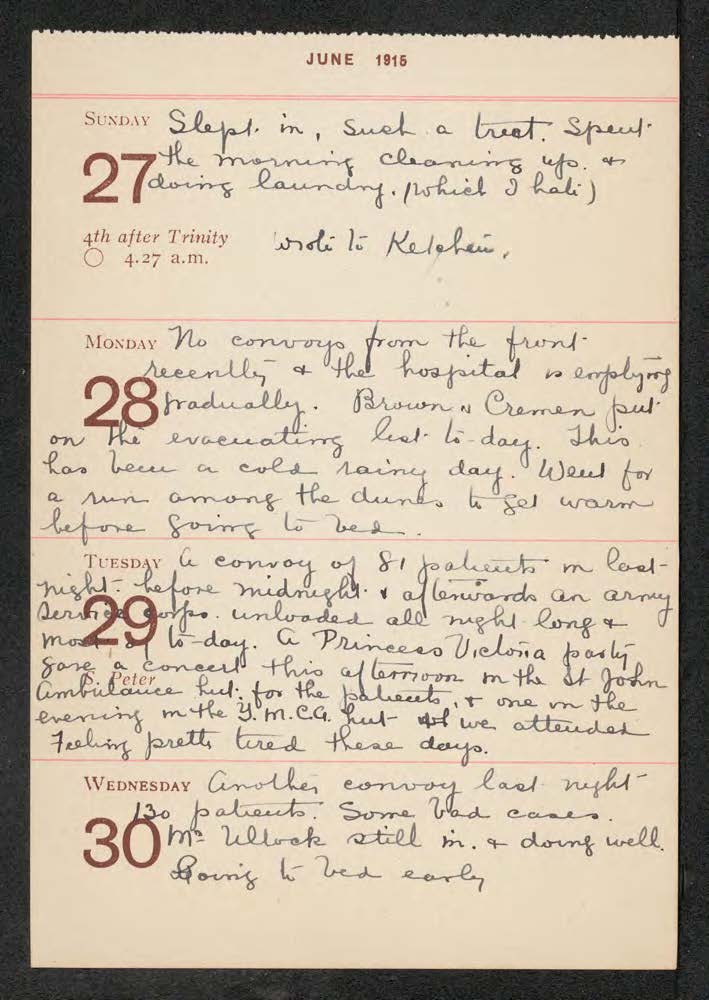 JUNE 1915
SUNDAY Slept in, such a treat. Spent
27 the morning cleaning up. &
doing laundry. (which I hate)
4th after Trinity wrote to
4.27 a.m.
MONDAY No convoys from the front
recently & the hospital is emptying
28 gradually. Brown & Cremen put
on the evacuating list to-day. This
has been a cold rainy day. Went for
a run among the dunes to get warm
before going to bed.
TUESDAY A convoy of 81 patients in last
night before midnight & afterwards an army
29 service corps. unloaded all night long &
most of to-day. A Princess Victoria party
gave a concert this afternoon in the St John
S. Peter
Ambulance hut. for the patients, & one in the
evening in the Y.M.C.A. hut we attended
Feeling pretty tired these days.
WEDNESDAY Another convoy last night
130 patients. Some bad cases.
30 Mc Ullock still in. & doing well.
Going to bed early